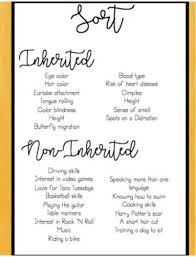 Sort
Inherited
Eye color
Hair color
Earlobe attachment
Tongue rolling
Color blindness
Height
Butterfly migration
Blood type
Risk of heart disease
Dimples
Height
Sense of smell
Spots on a Dalmatian
Non-Inherited
Driving skills
Interest in video games
Love for Taco Tuesdays
Basketball skills
Playing the guitar
Table manners
Interest in Rock 'N Roll
Music
Riding a bike
Speaking more than one
language
Knowing how to swim
Cooking skills
Harry Potter's scar
A short hair cut
Training a dog to sit